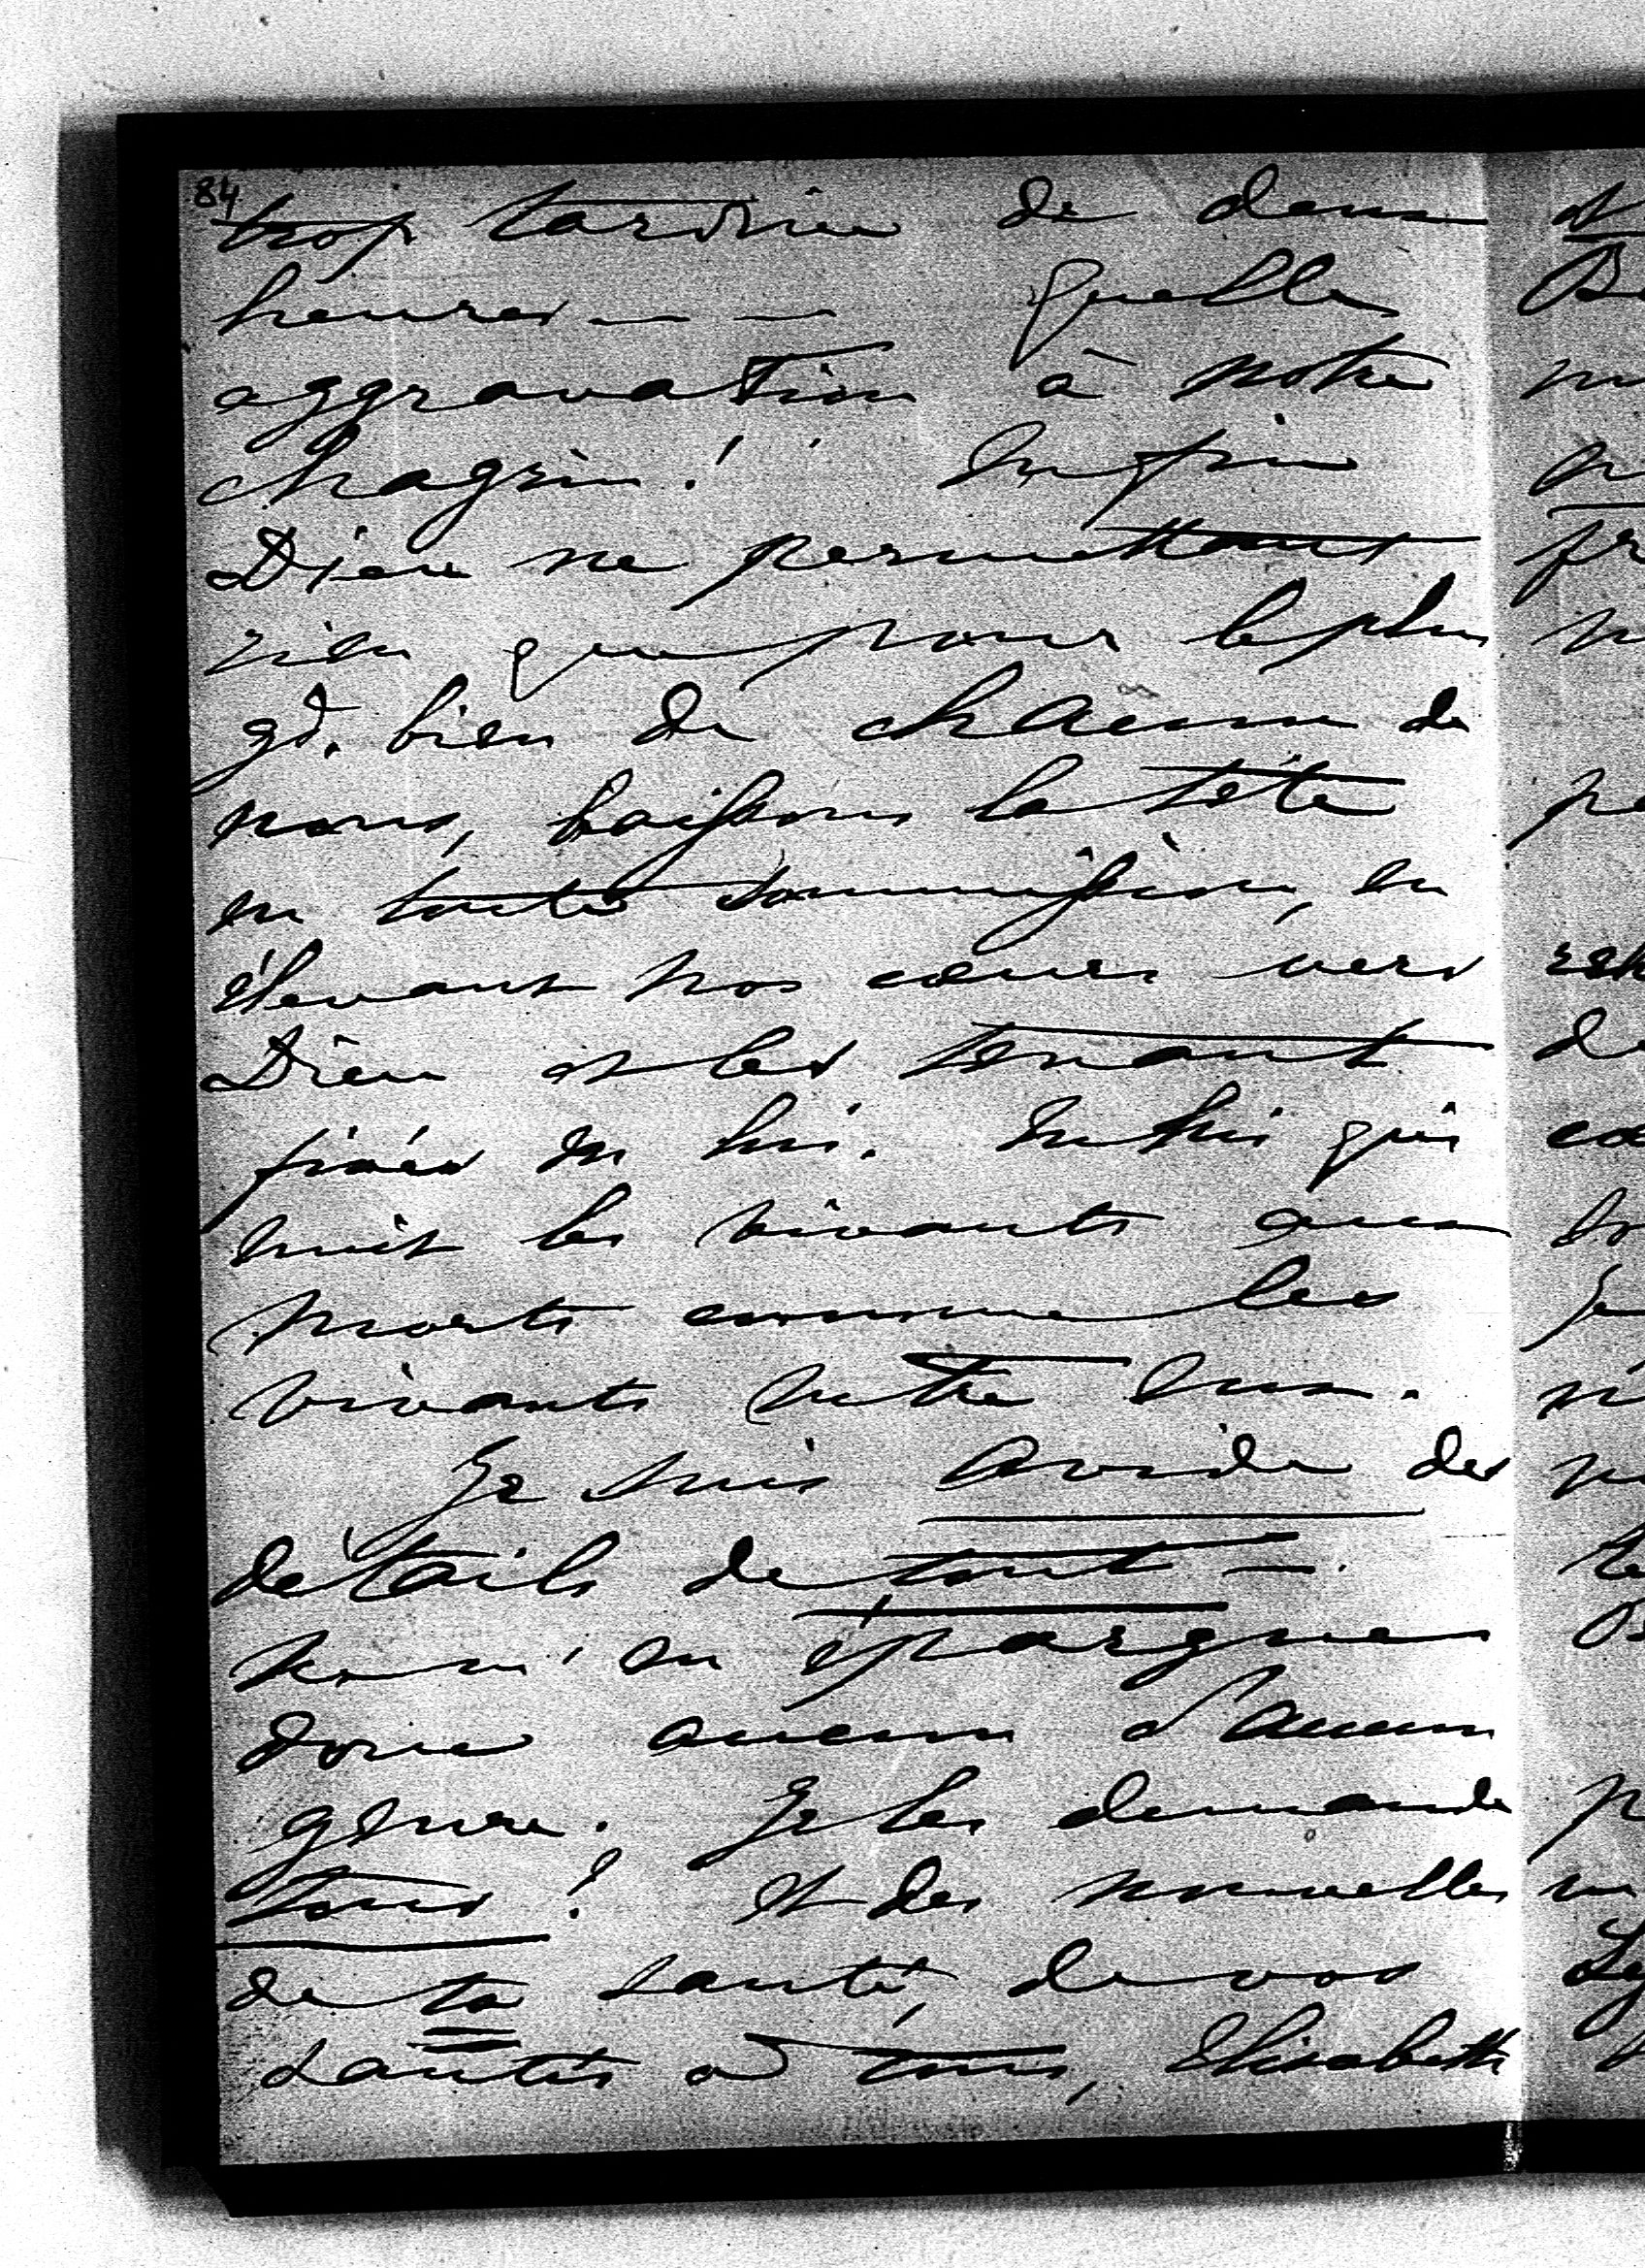 84
trop tardive de deux
heures — — — quelle
aggravation à notre
chagrin! Enfin
Dieu ne permettant
rien que pour le plus
gd. bien de chacun de
nous, baissons la tête
en toute soummission, en
élevant nos cœurs vers
Dieu et les tenant
fixés en lui. En lui qui
unit les vivants aux
morts comme les
vivants entre eux.
Je suis avide des
détails de tout —.
ne m'en épargne
donc aucun d'aucun
genre. Je les demande
tous! Et des nouvelles
de ta santé, de vos
santés à tous, Elisabeth